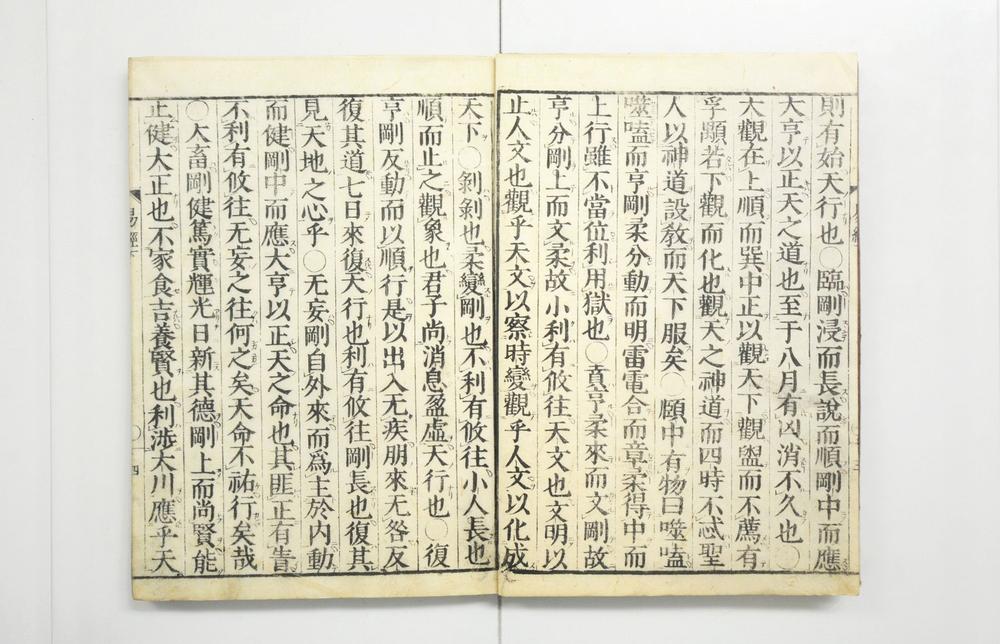 則有始天行也〇臨剛浸而長說而順剛中而應
大亨以正天之道也至于八月有凶消不久也〇
大觀在上順而巽中正以觀天下觀盥而不薦有
孚顒若下觀而化也觀天之神道而四時不忒聖
人以神道設敎而天下服矣〇頤中有物曰噬嗑
噬嗑而亨剛柔分動而明雷電合而章柔得中而
上行雖不當位利用獄也〇賁亨柔來而文剛故
亨分剛上而文柔故小利有攸往天文也文明以
止人文也觀乎天文以察時變觀乎人文以化成
天下〇剝剝也柔變剛也不利有攸往小人長也
順而止之觀象也君子尚消息盈虛天行也〇復
亨剛反動而以順行是以出入无疾朋來无咎反
復其道七日來復天行也利有攸往剛長也復其
見天地之心乎〇无妄剛自外來而爲主於內動
而健剛中而應大亨以正天之命也其匪正有眚
不利有攸往无妄之往何之矣天命不祐行矣哉
〇大畜剛健篤實輝光日新其德剛上而尚賢能
止健大正也不家食吉養賢也利涉大川應乎天
易經
四